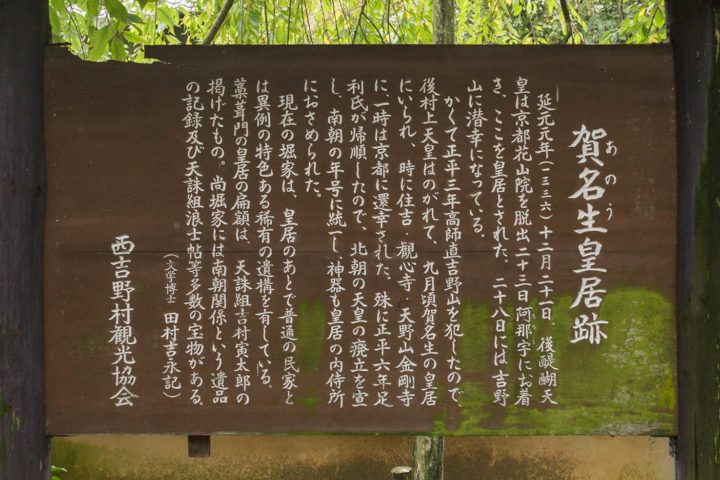 賀名生皇居跡
あのう
延元元年(一三三六)十二月二十一日、後醍醐天
皇は京都花山院を脱出二十三日阿那宇にお着
き、ここを皇居とされた、二十八日には吉野
山に潜幸になっている。
かくて正平三年高師直吉野山を犯したので、
後村上天皇はのがれて、九月頃賀名生の皇居
にいられ、時に住吉・観心寺・天野山金剛寺
に、一時は京都に還幸された。殊に正平六年足
利氏が帰順したので、北朝の天皇の廃立を宣
し、南朝の年号に統一し、神器も皇居の内侍所
におさめられた。
現在の堀家は、皇居のあとで普通の民家と
は異例の特色ある稀有の遺構を有している。
藁葺門の皇居の扁額は、天誅組吉村寅太郎の
掲げたもの。尚堀家には南朝関係という遺品
の記録及び天誅組浪士帖等多数の宝物がある。
(文学博士 田村吉永記)
西吉野村観光協会